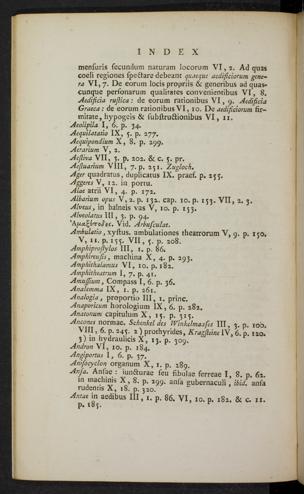 INDEX
mensuris secundum naturam locorum VI, 2. Ad quas
coeli regiones spectare debeant quaeque aedificiorum gene-
ra VI, 7. De eorum locis propriis & generibus ad quas-
cunque personarum qualitates convenientibus VI, 8.
Aedificia rustica: de eorum rationibus VI, 9. Aedificia
Graeca: de eorum rationibus VI, 10. De aedificiorum fir-
mitate, hypogeis & substructionibus VI, 11.
Aeolipila I, 6. p. 34.
Aequilatatio IX, 5. p. 277.
Aequipondium X, 8. p. 299.
Aerarium V, 2.
Aestiva VII, 3. p. 202. & c. 5. pr.
Aestuarium VIII, 7. p. 251. Zugloch.
Ager quadratus, duplicatus IX. praef. p. 255.
Aggeres V, 12. in portu.
Alae atrii VI, 4. p. 172.
Albarium opus V, 2. p. 132. cap. 10. p. 153. VII, 2. 3.
Alveus, in balneis vas V, 10. p. 153.
Alveolatus III, 3. p. 94.
Ἁμαξόποδες. Vid. Arbusculae.
Ambulatio, xystus. ambulationes theatrorum V, 9. p. 150.
V, 11. p. 155. VII, 5. p. 208.
Amphiprostylos III, 1. p. 86.
Amphireusis, machina X, 4. p. 293.
Amphithalamus VI, 10. p. 182.
Amphitheatrum I, 7. p. 41.
Amussium, Compass I, 6. p. 36.
Analemma IX, 1. p. 261.
Analogia, proportio III, 1. princ.
Anaporicum horologium IX, 6. p. 282.
Anatonum capitulum X, 15. p. 315.
Ancones normae. Schenkel des Winkelmasses III, 3. p. 100.
VIII, 6. p. 245. 2) prothyrides, Kragsteine IV, 6. p. 120.
3) in hydraulicis X, 13. p. 309.
Andron VI, 10. p. 184.
Angiportus I, 6. p. 37.
Anisocyclon organum X, 1. p. 289.
Ansa. Ansae: iuncturae seu fibulae ferreae I, 8. p. 62.
in machinis X, 8. p. 299. ansa gubernaculi, ibid. ansa
rudentis X, 18. p. 320.
Antae in aedibus III, 1. p. 86. VI, 10. p. 182. & c. 11.
p. 185.